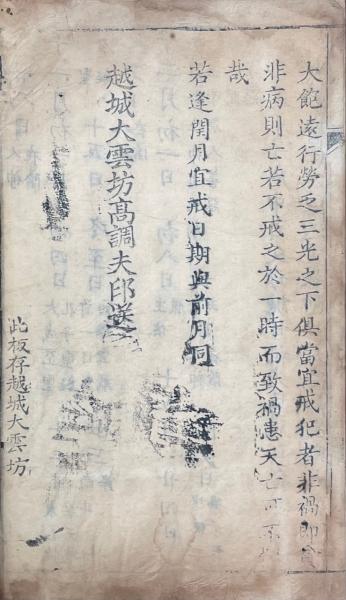 大飽遠行勞乏三光之下俱當宜戒犯者非禍即
非病則亡若不戒之於一時而致禍患夭亡可不
哉
若逢閏月宜戒日期與前月同
越城大雲坊髙調夫印送
此板存越城大雲坊